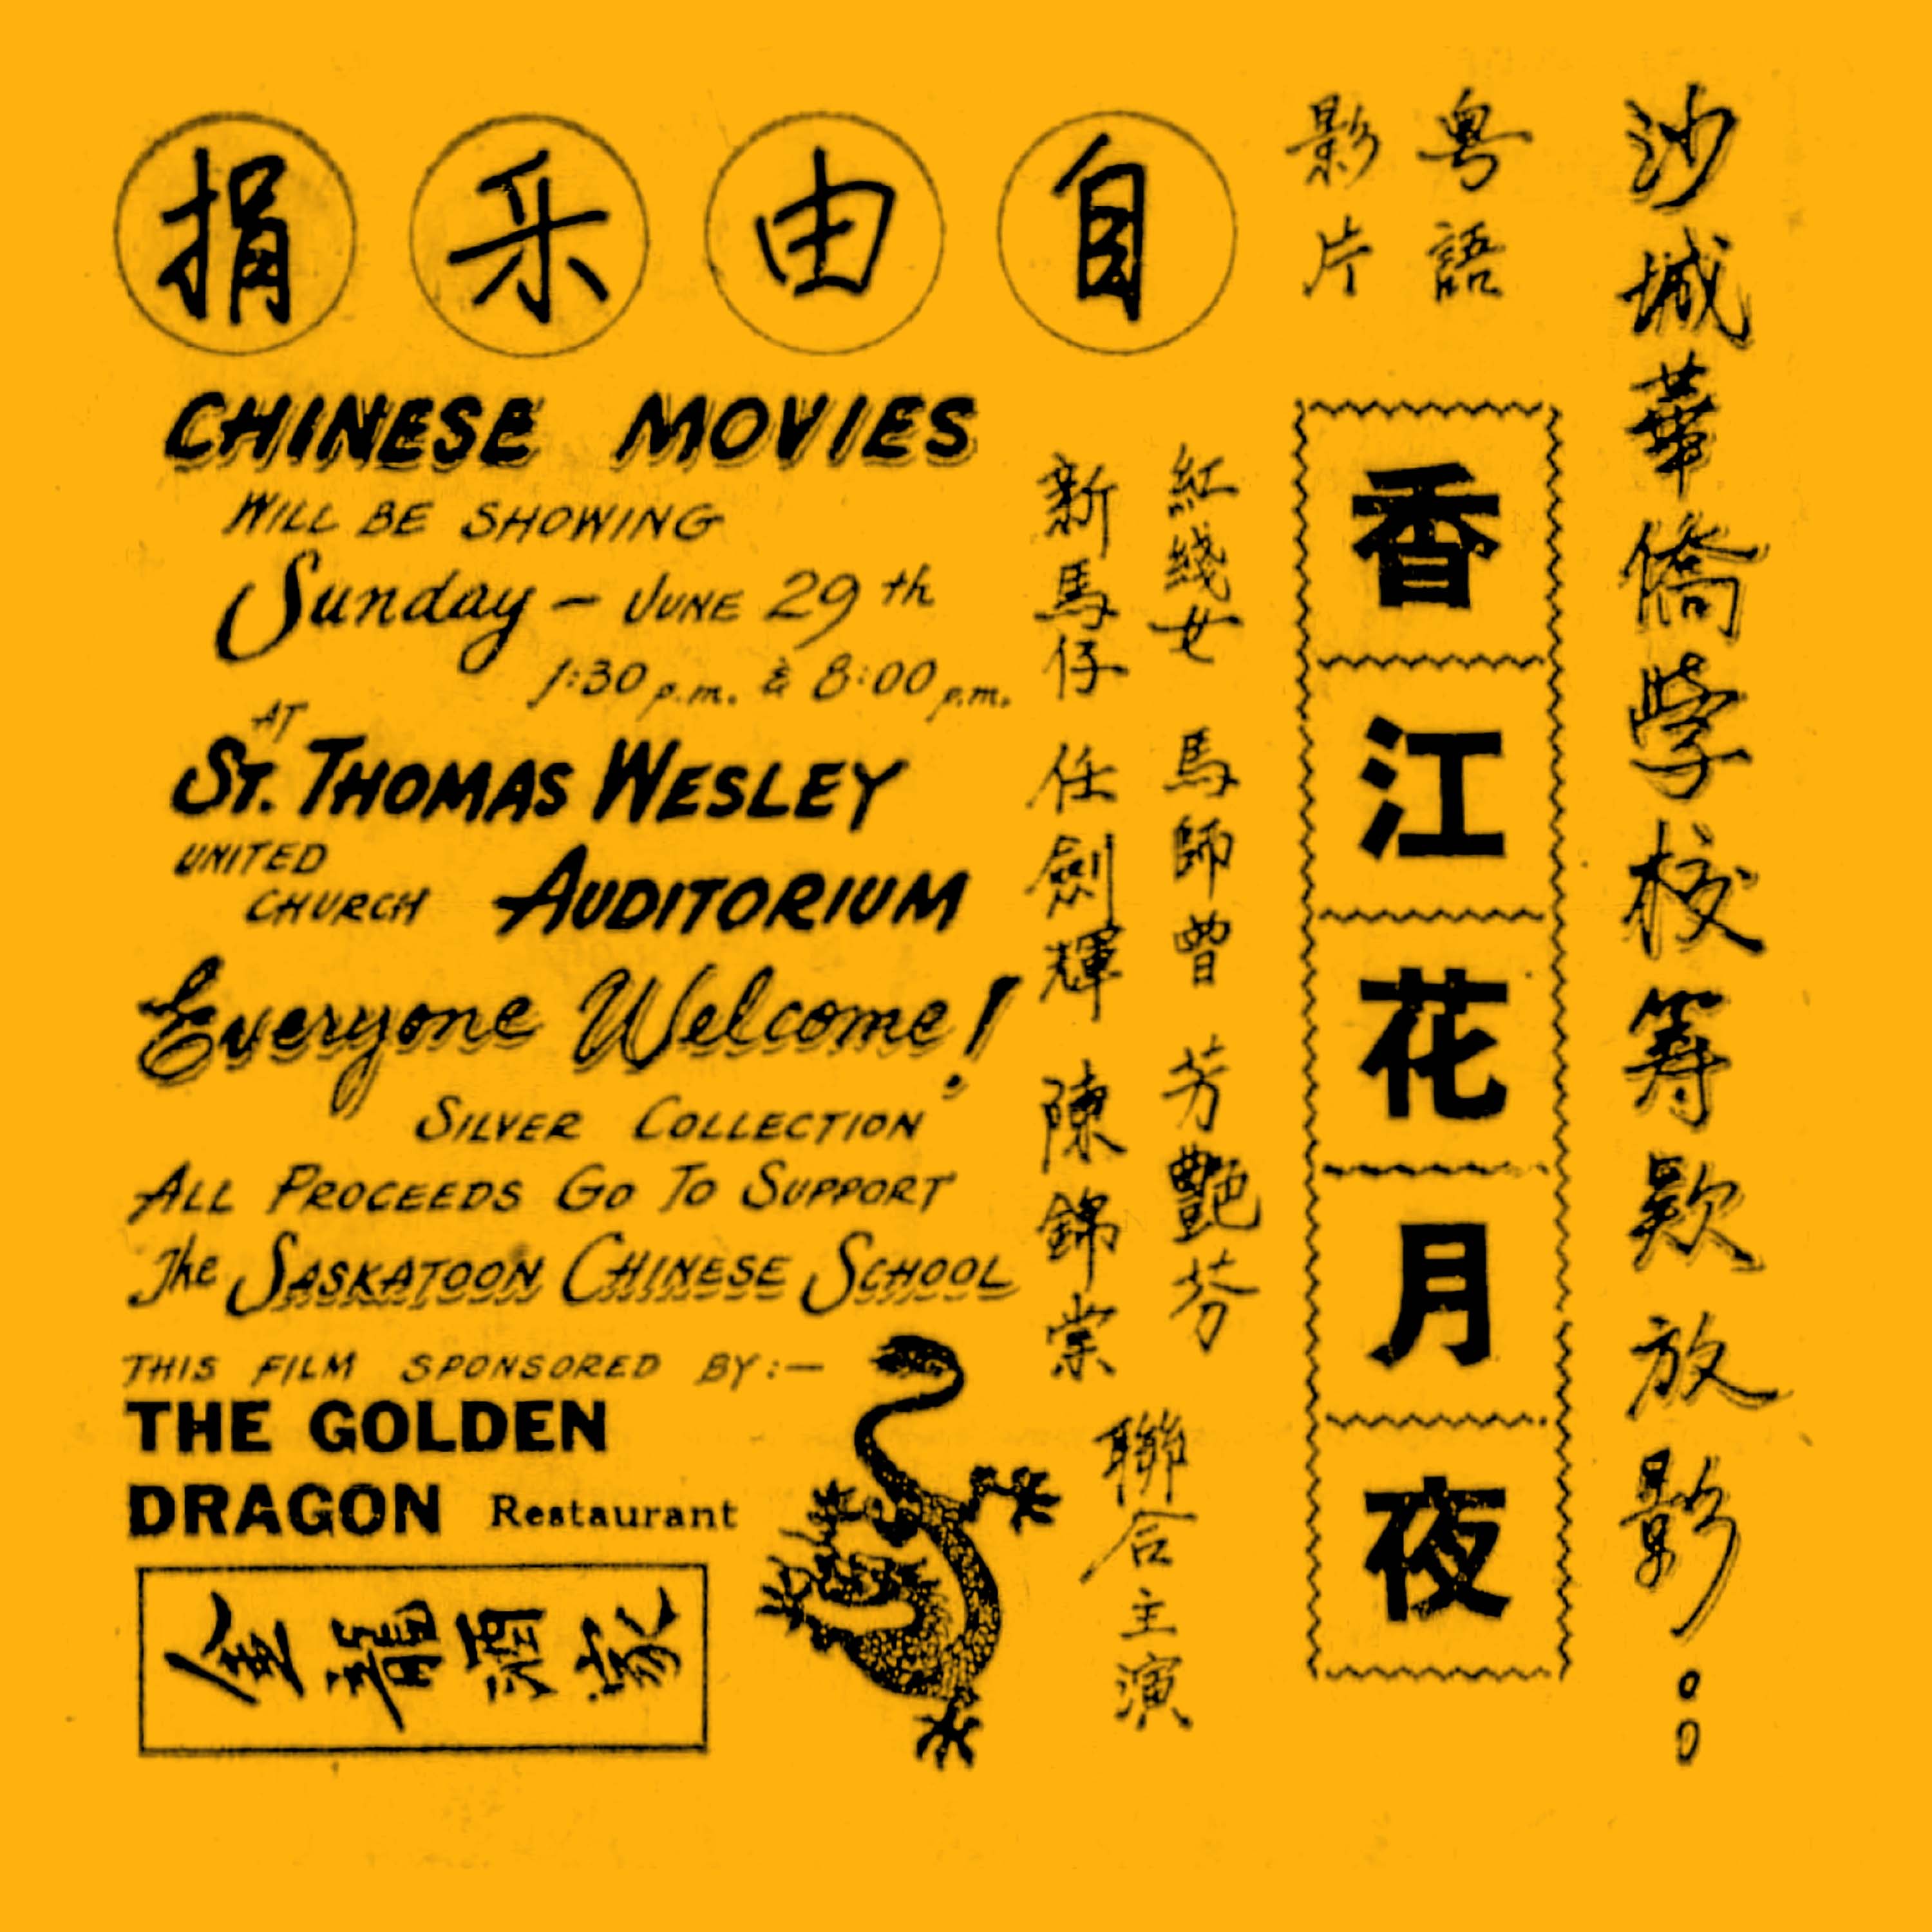 沙城華僑学校筹欵放影：
粤語
影片
香江花月夜
紅綫女 馬師曾 芳艷芬
新馬仔 任劍輝 陳錦棠
聯合主演
自由乐捐
CHINESE MOVIES
WILL BE SHOWING
Sunday – JUNE 29th
1:30 p.m. & 8:00 p.m.
AT
ST. THOMAS WESLEY
UNITED
CHURCH AUDITORIUM
Everyone Welcome!
SILVER COLLECTION
ALL PROCEEDS GO TO SUPPORT
The SASKATOON CHINESE SCHOOL
THIS FILM SPONSORED BY:—
THE GOLDEN
DRAGON Restaurant
金龍酒家